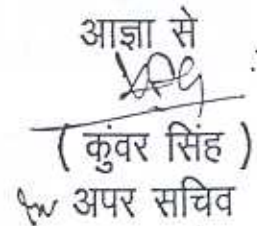 आज्ञा से
( कुंवर सिंह )
अपर सचिव